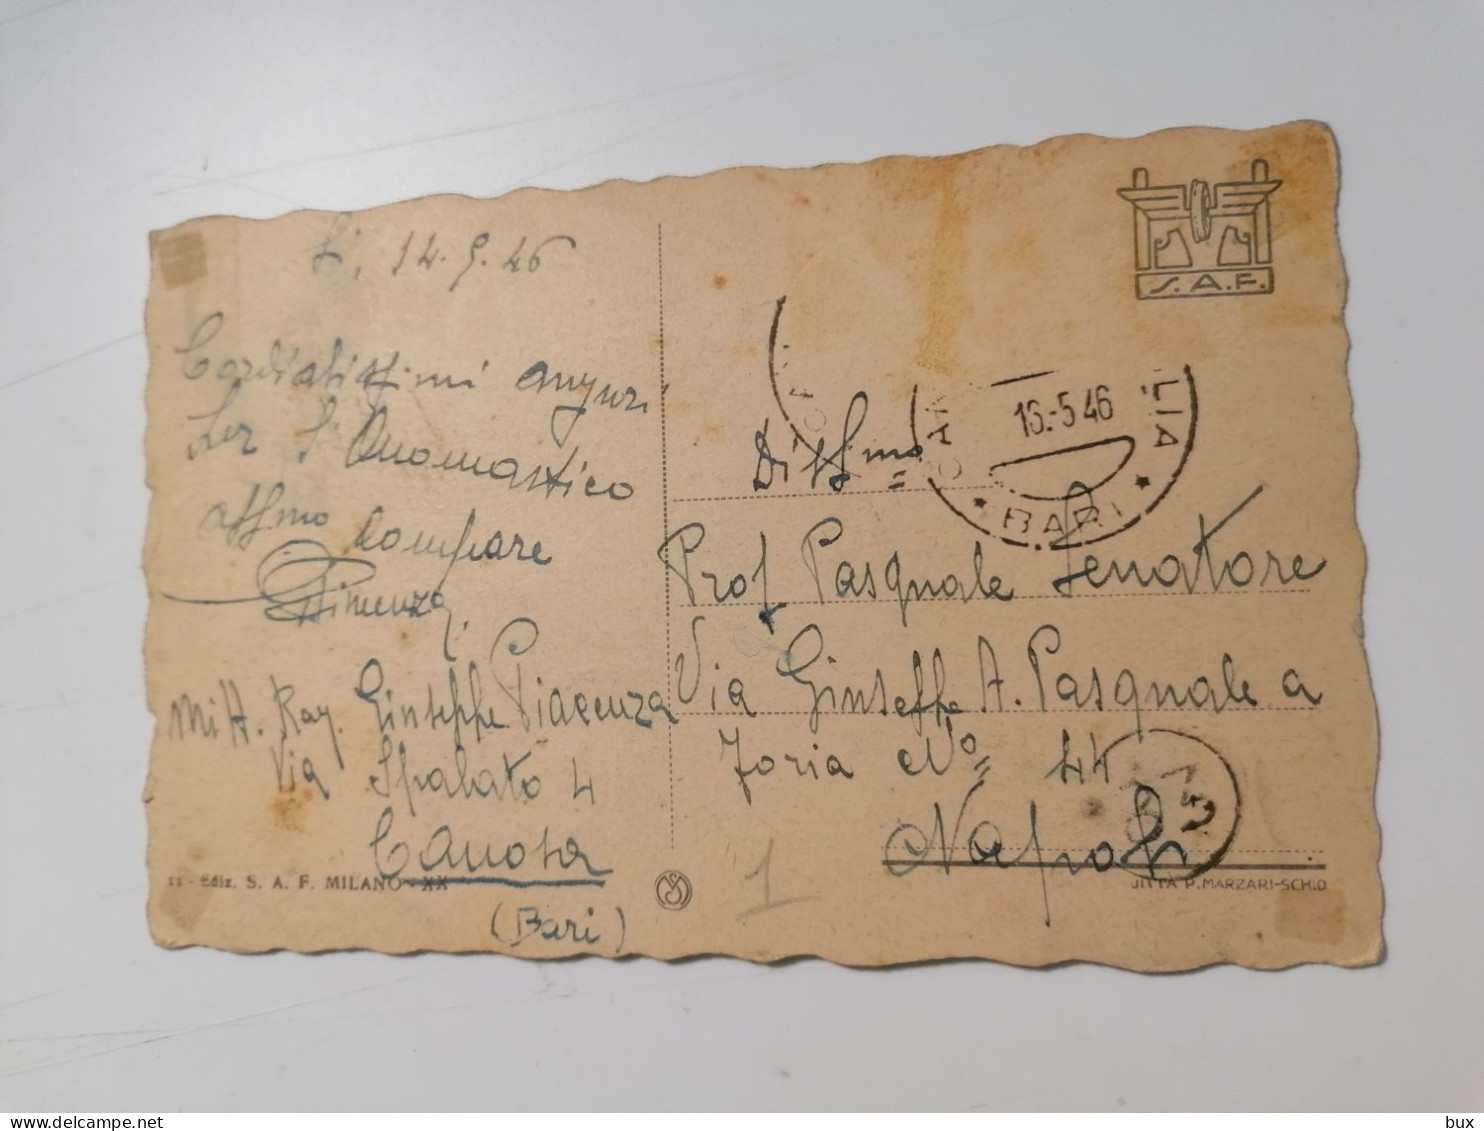 Li, 14.5.46
Cordialissimi auguri
per l'Onomastico
aff.mo Compare
Piacenza
Mitt. Rag. Giuseppe Piacenza
Via Spalato 4
Canosa
(Bari)
11 - Ediz. S. A. F. MILANO - XX
S.A.F.
16.-5 46
LIA
* BARI *
Dist.mo
Prof Pasquale Senatore
Via Giuseppe A. Pasquale a
Foria No 44
Napoli
DITTA P. MARZARI-SCHIO
1
bux